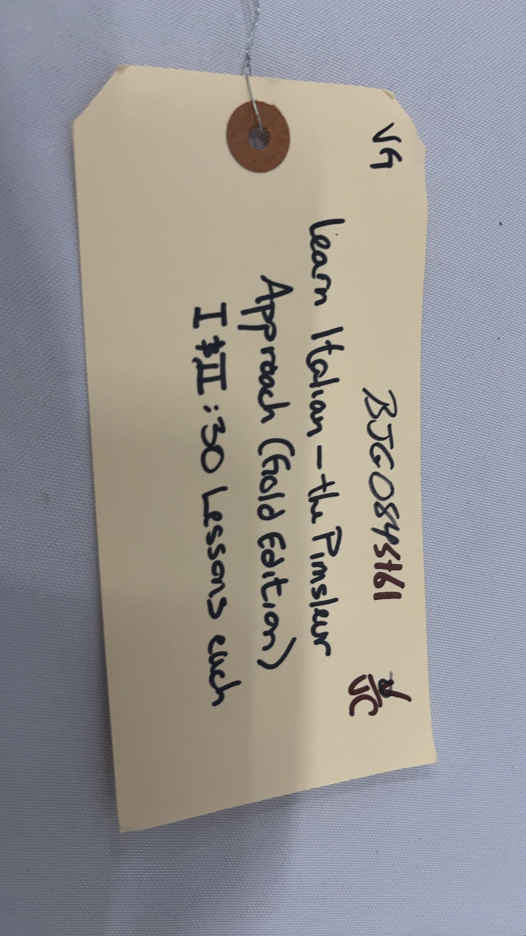 VG
BJG084St61
VC
Learn Italian - the Pimsleur
Approach (Gold Edition)
I & II : 30 Lessons each